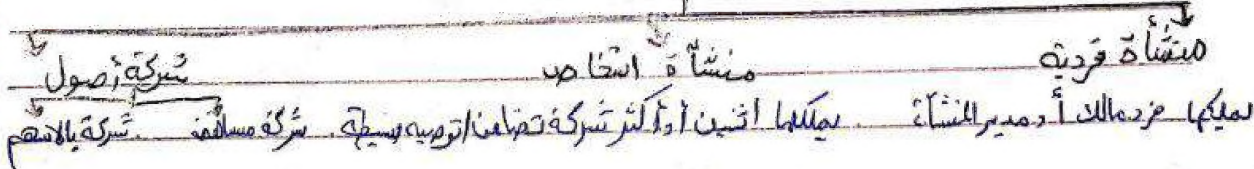 منشأة فردية منشأة اشخاص شركة أصول
يمليكها فرد مالك أو مدير المنشأة يمكلها اثنين أو أكثر شركة تضامن / توصيه بسيطة. شركة مساهمة شركة بالاسهم